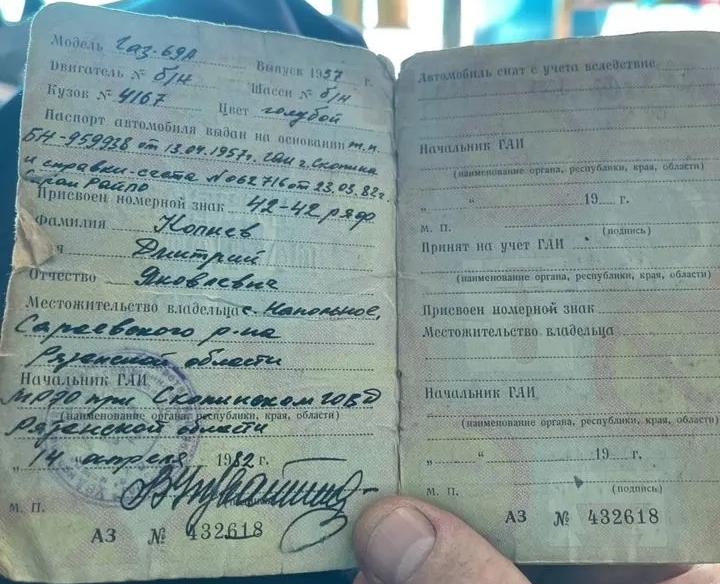 Модель Газ-69А
Двигатель № б/н Выпуск 1957 г.
Кузов № 4167 Шасси № б/н
Цвет голубой
Паспорт автомобиля выдан на основании т.п.
БН-959938 от 13.04.1957г. ГАИ г. Скопина
и справки-счета № 062716 от 23.03.82г.
Сараи Райпо
Присвоен номерной знак 42-42 ряф
Фамилия Копнев
я Дмитрий
Отчество Яковлевич
Местожительство владельца с. Напольное,
Сараевского р-на
Рязанской области
Начальник ГАИ
МРЭО при Скопинском ГОВД
(наименование органа, республики, края, области)
Рязанской области
„14“ апреля 1982 г.
М. П.
АЗ № 432618
Автомобиль снят с учета вследствие
Начальник ГАИ
(наименование органа, республики, края, области)
„ “ 19 г.
М. П. (подпись)
Принят на учет ГАИ
(наименование органа, республики, края, области)
Присвоен номерной знак
Местожительство владельца
Начальник ГАИ
(наименование органа, республики, края, области)
„ “ 19 г.
М. П. (подпись)
АЗ № 432618